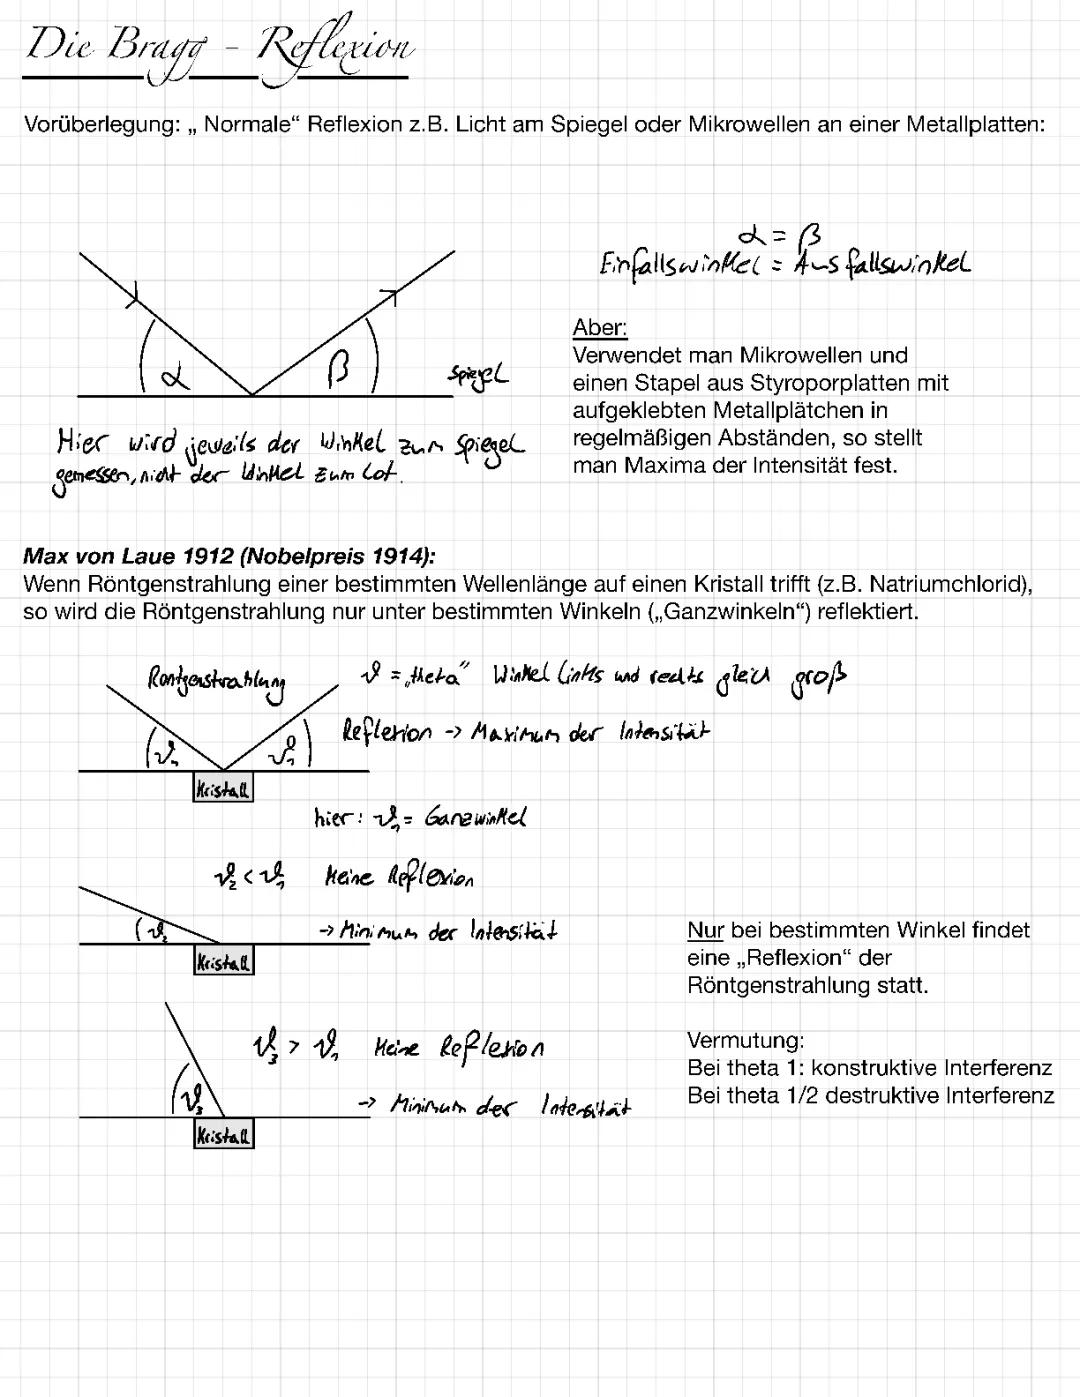 Die Bragg - Reflexion
Vorüberlegung: „ Normale“ Reflexion z.B. Licht am Spiegel oder Mikrowellen an einer Metallplatten:
α = β
Einfallswinkel = Ausfallswinkel
α
β
Spiegel
Hier wird jeweils der Winkel zum Spiegel
gemessen, nicht der Winkel zum Lot.
Aber:
Verwendet man Mikrowellen und
einen Stapel aus Styroporplatten mit
aufgeklebten Metallplätchen in
regelmäßigen Abständen, so stellt
man Maxima der Intensität fest.
Max von Laue 1912 (Nobelpreis 1914):
Wenn Röntgenstrahlung einer bestimmten Wellenlänge auf einen Kristall trifft (z.B. Natriumchlorid),
so wird die Röntgenstrahlung nur unter bestimmten Winkeln („Ganzwinkeln“) reflektiert.
Röntgenstrahlung
ϑ = „theta“ Winkel links und rechts gleich groß
Reflexion -> Maximum der Intensität
ϑ₁
ϑ₁
Kristall
hier: ϑ₁ = Ganzwinkel
ϑ₂ < ϑ₁ keine Reflexion
-> Minimum der Intensität
ϑ₂
Kristall
Nur bei bestimmten Winkel findet
eine „Reflexion“ der
Röntgenstrahlung statt.
ϑ₃ > ϑ₁ keine Reflexion
-> Minimum der Intensität
ϑ₃
Kristall
Vermutung:
Bei theta 1: konstruktive Interferenz
Bei theta 1/2 destruktive Interferenz